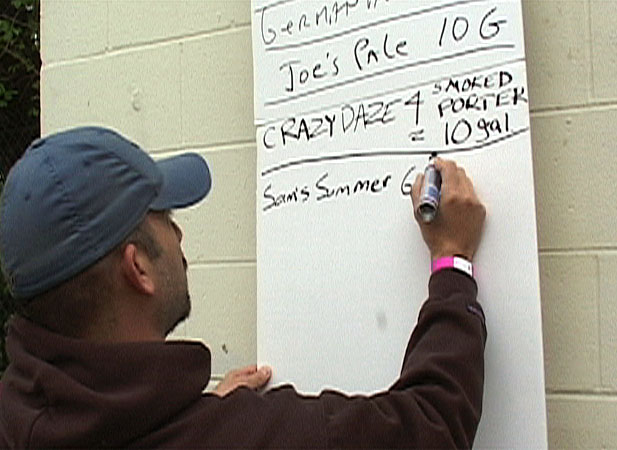 Joe's Pale 10 G
CRAZY DAZE 4 SMOKED
PORTER
= 10 gal
Sam's Summer G